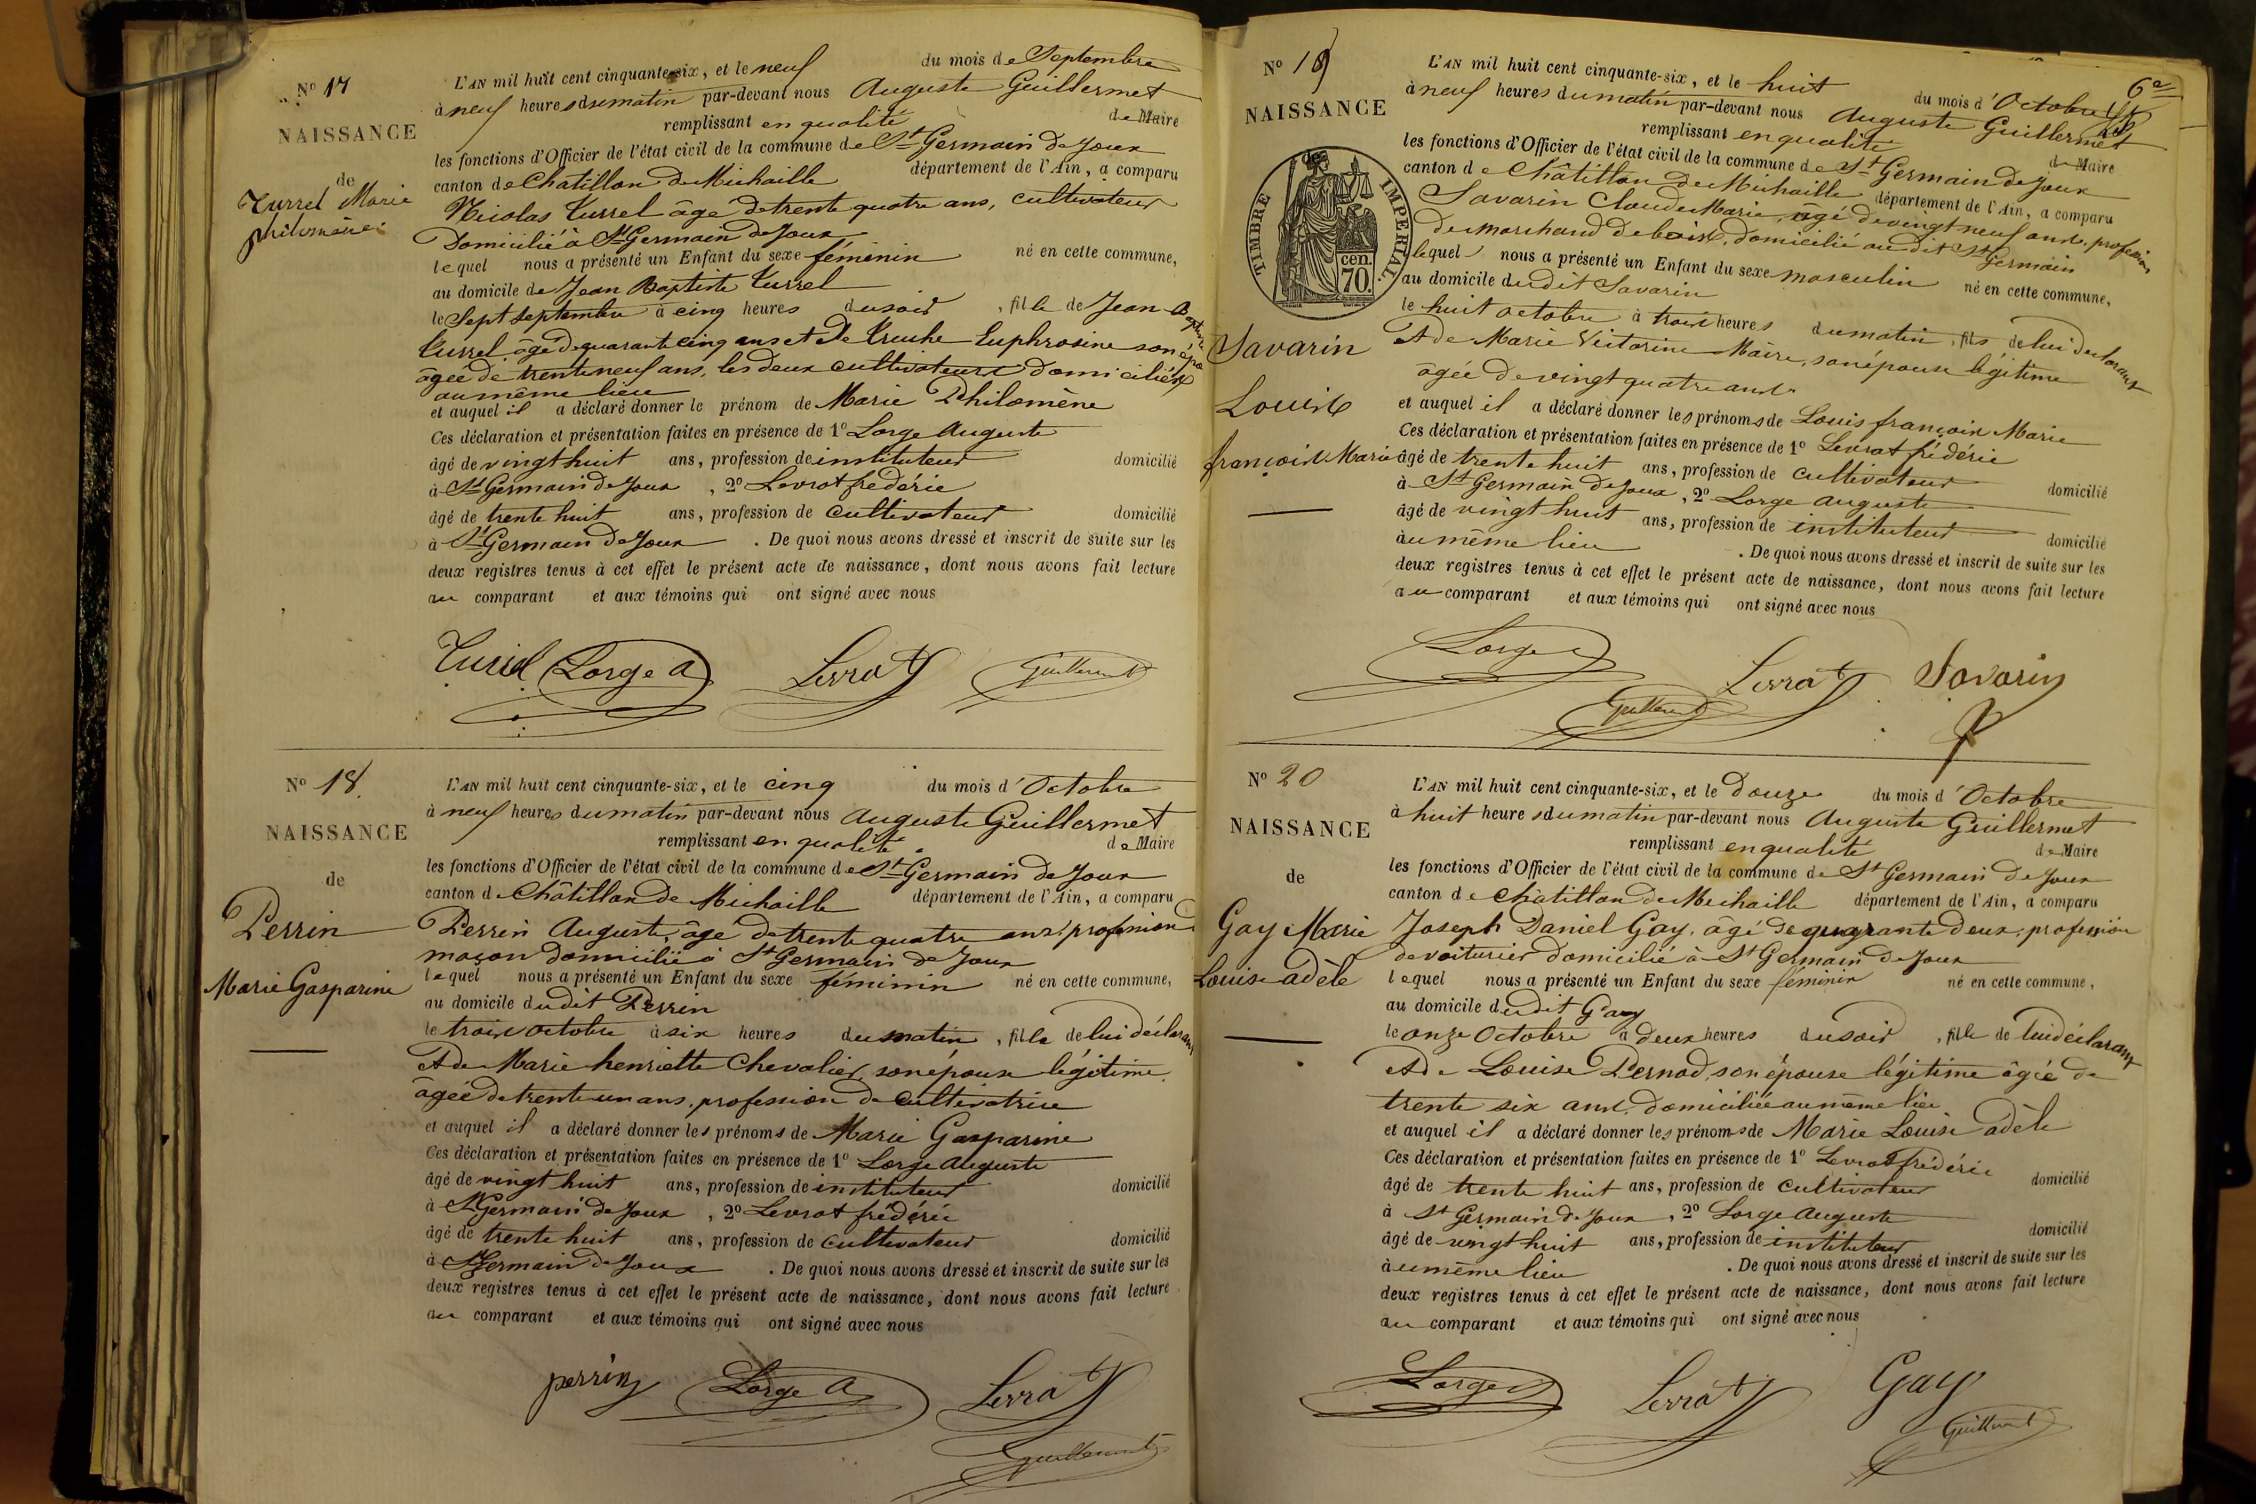 N° 17
NAISSANCE
de
Turrel Marie
philomène
L'AN mil huit cent cinquante-six, et le neuf du mois de Septembre
à neuf heures du matin par-devant nous Auguste Guillermet
remplissant en qualité de Maire
les fonctions d'Officier de l'état civil de la commune de St Germain de Joux
canton de Châtillon de Michaille département de l'Ain, a comparu
Nicolas Turrel âgé de trente quatre ans, cultivateur
Domicilié à St Germain de Joux
lequel nous a présenté un Enfant du sexe féminin né en cette commune,
au domicile de Jean Baptiste Turrel
le Sept septembre à cinq heures du soir, fille de Jean Baptiste
Turrel âgé de quarante cinq ans et de Euphrosine son épouse
âgée de trente neuf ans, les deux cultivateurs domiciliés
au même lieu
et auquel il a déclaré donner le prénom de Marie Philomène
Ces déclaration et présentation faites en présence de 1° Lorge Auguste
âgé de vingt huit ans, profession de instituteur domicilié
à St Germain de Joux, 2° Levrat frédéric
âgé de trente huit ans, profession de cultivateur domicilié
à St Germain de Joux. De quoi nous avons dressé et inscrit de suite sur les
deux registres tenus à cet effet le présent acte de naissance, dont nous avons fait lecture
au comparant et aux témoins qui ont signé avec nous
Turrel Lorge A Levrat Guillermet
N° 18
NAISSANCE
de
Perrin
Marie Gasparine
L'AN mil huit cent cinquante-six, et le cinq du mois d'Octobre
à neuf heures du matin par-devant nous Auguste Guillermet
remplissant en qualité de Maire
les fonctions d'Officier de l'état civil de la commune de St Germain de Joux
canton de Châtillon de Michaille département de l'Ain, a comparu
Perrin Auguste, âgé de trente quatre ans, profession
maçon domicilié à St Germain de Joux
lequel nous a présenté un Enfant du sexe féminin né en cette commune,
au domicile dudit Perrin
le trois octobre à six heures du matin, fille de lui déclarant
Et de Marie henriette Chevalier, son épouse légitime,
âgée de trente un ans, profession de cultivatrice
et auquel il a déclaré donner les prénoms de Marie Gasparine
Ces déclaration et présentation faites en présence de 1° Lorge Auguste
âgé de vingt huit ans, profession de instituteur domicilié
à St Germain de Joux, 2° Levrat frédéric
âgé de trente huit ans, profession de cultivateur domicilié
à St Germain de Joux. De quoi nous avons dressé et inscrit de suite sur les
deux registres tenus à cet effet le présent acte de naissance, dont nous avons fait lecture
au comparant et aux témoins qui ont signé avec nous
perrin Lorge A Levrat
Guillermet
6e
N° 19
NAISSANCE
TIMBRE IMPERIAL.
70 cen.
Savarin
Louis
françois Marie
L'AN mil huit cent cinquante-six, et le huit du mois d'Octobre
à neuf heures du matin par-devant nous Auguste Guillermet
remplissant en qualité de Maire
les fonctions d'Officier de l'état civil de la commune de St Germain de Joux
canton de Châtillon de Michaille département de l'Ain, a comparu
Savarin Claude Marie, âgé de vingt neuf ans, profession
de marchand de bois, domicilié audit St Germain
lequel nous a présenté un Enfant du sexe masculin né en cette commune,
au domicile dudit Savarin
le huit octobre à trois heures du matin, fils de lui déclarant
Et de Marie Victorine Maire, son épouse légitime
âgée de vingt quatre ans
et auquel il a déclaré donner les prénoms de Louis françois Marie
Ces déclaration et présentation faites en présence de 1° Levrat frédéric
âgé de trente huit ans, profession de cultivateur domicilié
à St Germain de Joux, 2° Lorge Auguste
âgé de vingt huit ans, profession de instituteur domicilié
à au même lieu. De quoi nous avons dressé et inscrit de suite sur les
deux registres tenus à cet effet le présent acte de naissance, dont nous avons fait lecture
au comparant et aux témoins qui ont signé avec nous
Lorge Levrat Savarin
Guillermet
N° 20
NAISSANCE
de
Gay Marie
Louise adèle
L'AN mil huit cent cinquante-six, et le Douze du mois d'Octobre
à huit heures du matin par-devant nous Auguste Guillermet
remplissant en qualité de Maire
les fonctions d'Officier de l'état civil de la commune de St Germain de Joux
canton de Châtillon de Michaille département de l'Ain, a comparu
Joseph Daniel Gay, âgé de quarante deux, profession
de voiturier domicilié à St Germain de Joux
lequel nous a présenté un Enfant du sexe féminin né en cette commune,
au domicile dudit Gay
le onze Octobre à deux heures du soir, fille de lui déclarant
Et de Louise Pernod, son épouse légitime âgée de
trente six ans, domiciliée au même lieu
et auquel il a déclaré donner les prénoms de Marie Louise adèle
Ces déclaration et présentation faites en présence de 1° Levrat frédéric
âgé de trente huit ans, profession de cultivateur domicilié
à St Germain de Joux, 2° Lorge Auguste
âgé de vingt huit ans, profession de instituteur domicilié
à au même lieu. De quoi nous avons dressé et inscrit de suite sur les
deux registres tenus à cet effet le présent acte de naissance, dont nous avons fait lecture
au comparant et aux témoins qui ont signé avec nous
Lorge Levrat Gay
Guillermet